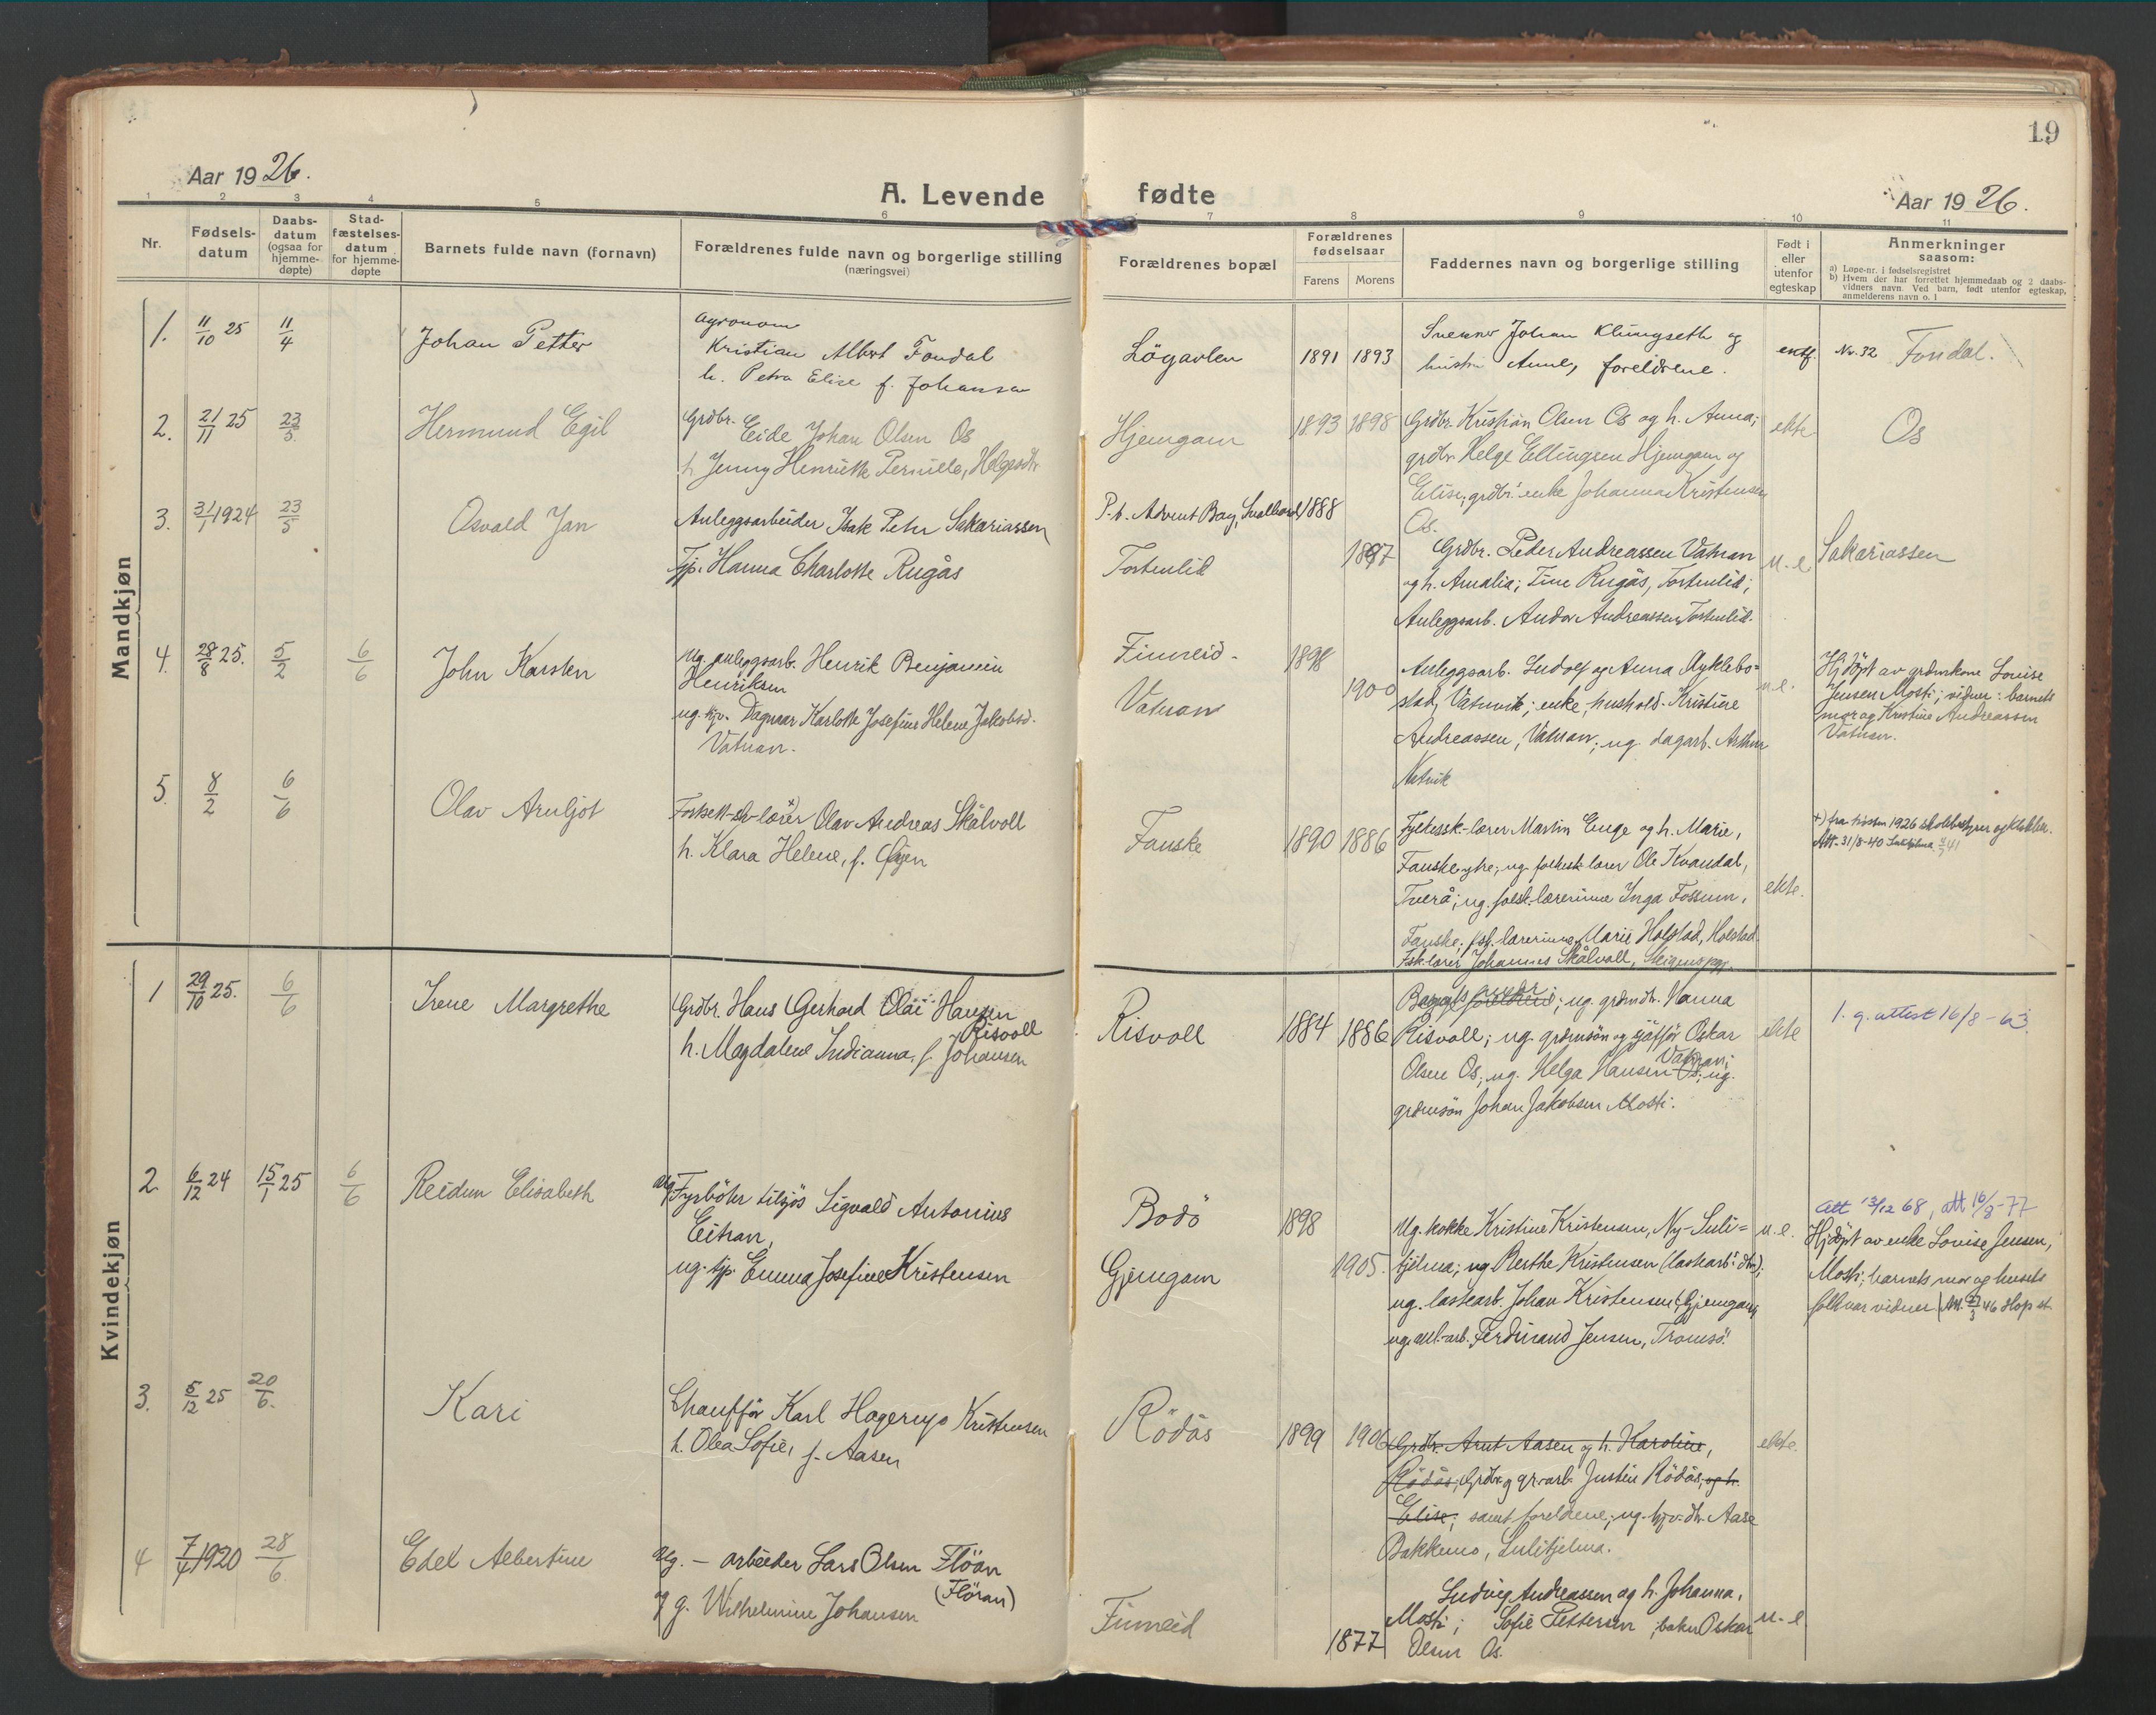 19
Aar 1926.
A. Levende fødte
Aar 1926.
1 2 3 4 5 6 7 8 9 10 11
Nr.
Fødselsdatum
Daabsdatum (ogsaa for hjemmedøpte)
Stadfæstelsesdatum for hjemmedøpte
Barnets fulde navn (fornavn)
Forældrenes fulde navn og borgerlige stilling
(næringsvei)
Forældrenes bopæl
Forældrenes fødselsaar
Farens Morens
Faddernes navn og borgerlige stilling
Født i eller utenfor egteskap
Anmerkninger saasom:
a) Løpe-nr. i fødselsregistret
b) Hvem der har forrettet hjemmedaab og 2 daabsvidners navn. Ved barn, født utenfor egteskap, anmelderens navn o. l
Mandkjøn
1. 11/10 25 11/4
Johan Petter
Agronom
Kristian Albert Fondal
h. Petra Elise f. Johansen
Lögavlen
1891 1893
Johan Klungseth og
hustru Anne, foreldrene.
ektf
Nr. 32 Fondal.
2. 21/11 25 23/5
Hermund Egil
Grdbr. Eide Johan Olsen Os
h Jenny Henrikke Pernille, Helgesdtr
Hjemgam
1893 1898
Grdbr. Kristian Olsen Os og h. Anna;
grdbr. Helge Ellingsen Hjemgam og
Elise; grdbr. enke Johanna Kristensen
Os.
ekte
Os
3. 31/1 1924 23/5
Osvald Jan
Anleggsarbeider Isak Petr Sakariassen
Tjp. Hanna Charlotte Rugås
P.t. Advent Bay, Svalbard
Tortenlid
1888
1897
Grdbr. Peder Andreassen Vatnan
og h. Amalia; Tine Rugås, Tortenlid;
Anleggsarb. Andor Andreassen Tortenlid.
u-e
Sakariassen
4. 28/8 25. 5/2 6/6
John Karsten
Ug. anleggsarb. Henrik Benjamin
Henriksen
ug. tjv. Dagmar Karlotte Josefine Helene Jakobsd.
Vatnan.
Finneid
Vatnan
1898
1900
Anleggsarb. Ludolf og Anna Myklebostad, Vatnvik; enke, hushold. Kristine
Andreassen, Vatnan; ug. dagarb. Arthur
u.e.
Hjdöpt av grdmkone Louise
Jensen Mosti; vidner: barnets
mor og Kristine Andreassen
Vatnan.
5. 8/2 6/6
Olav Arnljot
lærer Olav Andreas Skålvoll
h. Klara Helene, f. Öyen
Fauske
1890 1886
lærer Martin Enge og h. Marie,
Fauske ytre; ug. folkesk. lærer Ole Kvandal,
Tverå; ug. folksk. lærerinne Inga Fossum,
Fauske; fsk. lærerinne Marie Holstad, Holstad
Fsk. lærer Johannes Skålvoll,
ekte.
+) fra høsten 1926 skolebestyrer og klokker.
Att. 31/8-40
Kvindekjøn
1 29/10 25. 6/6
Irene Margrethe
Grdbr. Hans Gerhard Olai Hansen
Risvoll
h. Magdalene Indianna, f. Johansen
Risvoll
1884 1886
Barnets foreldrene; ug. grdmdtr. Hanna
Risvoll; ug. grdmsön og sjåffør Oskar
Olsen Os; ug. Helga Hansen Os; ug.
Vatnan;
grdmsön Johan Jakobsen Mosti.
ekte
1. g. attest 16/8-63.
2. 6/12 24 15/1 25 6/6
Reidun Elisabeth
ug. Fyrböter tilsjös Sigvald Antonius
Eitran,
ug. tjp. Emma Josefine Kristensen
Bodö
Gjemgam
1898
1905.
Ug. kokke Kristine Kristensen, Ny-Sulitjelma; ug Berthe Kristensen (lastearb's dtr.);
ug. lastearb. Johan Kristensen, Gjemgam,
ug. anl-arb. Ferdinand Jensen, Tromsö.
u.e.
att 13/12 68, att 16/8-77
Hjdöpt av enke Lovise Jensen,
Mosti; barnets mor og husets
folk var vidner
3. 5/12 25 20/6.
Kari
Chauffør Karl Hagerup Kristensen
h. Olea Sofie, f. Aasen
Rödås
1899 1906
Grdbr. Arnt Aasen og h. Karoline,
Rödås; Grdbr. og gr.arb. Justin Rödås, og h.
Elise; samt foreldrene; ug. tjv. dtr. Aase
Bakkemo, Sulitjelma.
ekte.
4 7/4 1920 28/6
Edel Albertine
Ug. – arbeider Lars Olsen Flöan
(Flöran)
og g. Wilhelmine Johansen
Finneid
1877
Ludvig Andreassen og h. Johanna,
Mosti; Sofie Pettersen; baker Oskar
Olsen Os.
u-e